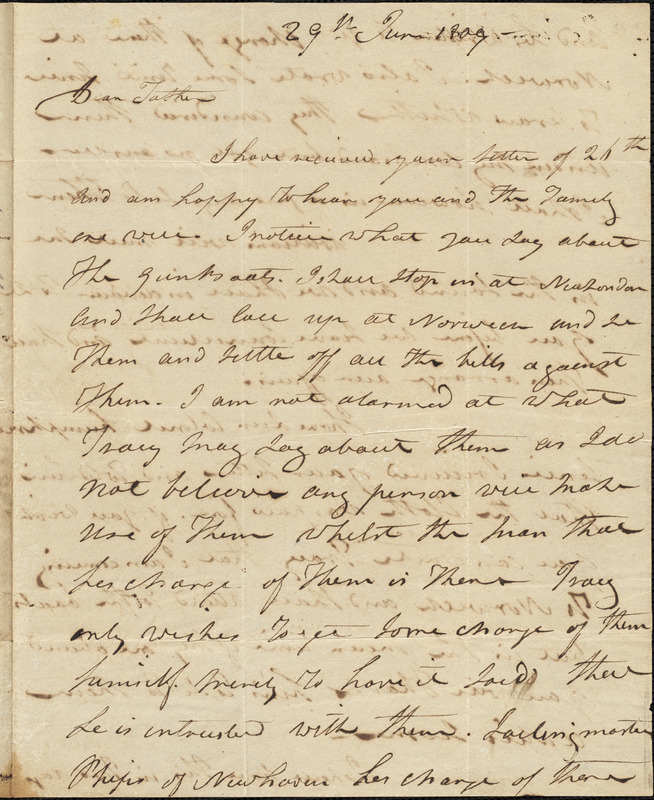 29th June 1809
Dear Father
I have received your letter of 26th
and am happy to hear you and the Family
are well. I notice what you say about
the gunboats. I shall stop in at New London
and shall call up at Norwich and see
them and settle off all the bills against
them. I am not alarmed at what
Tracy may say about them as I do
not believe any person will make
use of them whilst the man that
has charge of them is there Tracy
only wishes to get some charge of them
himself. merely to have it said that
he is intrusted with them. Sailing master
Phips of Newhaven has charge of there